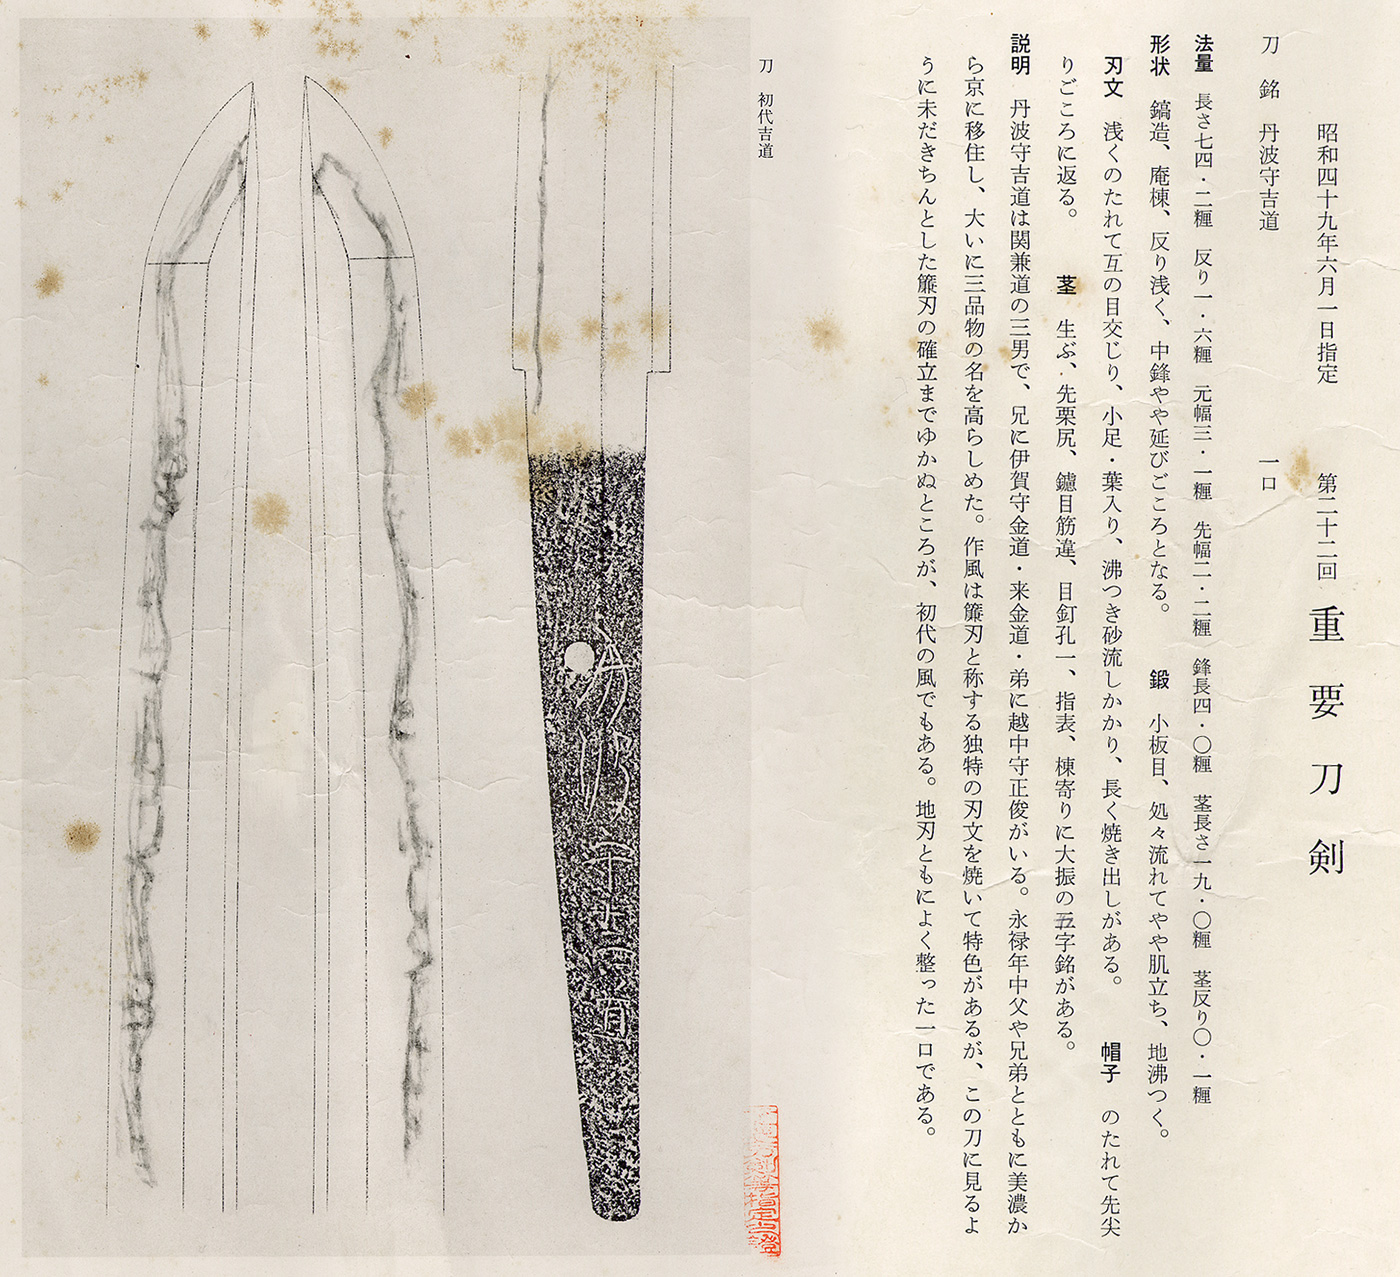 昭和四十九年六月一日指定　第二十二回　重要刀剣
刀　銘　丹波守吉道　一口
法量　長さ七四・二糎　反り一・六糎　元幅三・一糎　先幅二・二糎　鋒長四・〇糎　茎長さ一九・〇糎　茎反り〇・一糎
形状　鎬造、庵棟、反り浅く、中鋒やや延びごころとなる。　鍛　小板目、処々流れてやや肌立ち、地沸つく。
刃文　浅くのたれて互の目交じり、小足・葉入り、沸つき砂流しかかり、長く焼き出しがある。　帽子　のたれて先尖
りごころに返る。　茎　生ぶ、先栗尻、鑢目筋違、目釘孔一、指表、棟寄りに大振の五字銘がある。
説明　丹波守吉道は関兼道の三男で、兄に伊賀守金道・来金道・弟に越中守正俊がいる。永禄年中父や兄弟とともに美濃か
ら京に移住し、大いに三品物の名を高らしめた。作風は簾刃と称する独特の刃文を焼いて特色があるが、この刀に見るよ
うに未だきちんとした簾刃の確立までゆかぬところが、初代の風でもある。地刃ともによく整った一口である。
刀　初代吉道
丹波守吉道